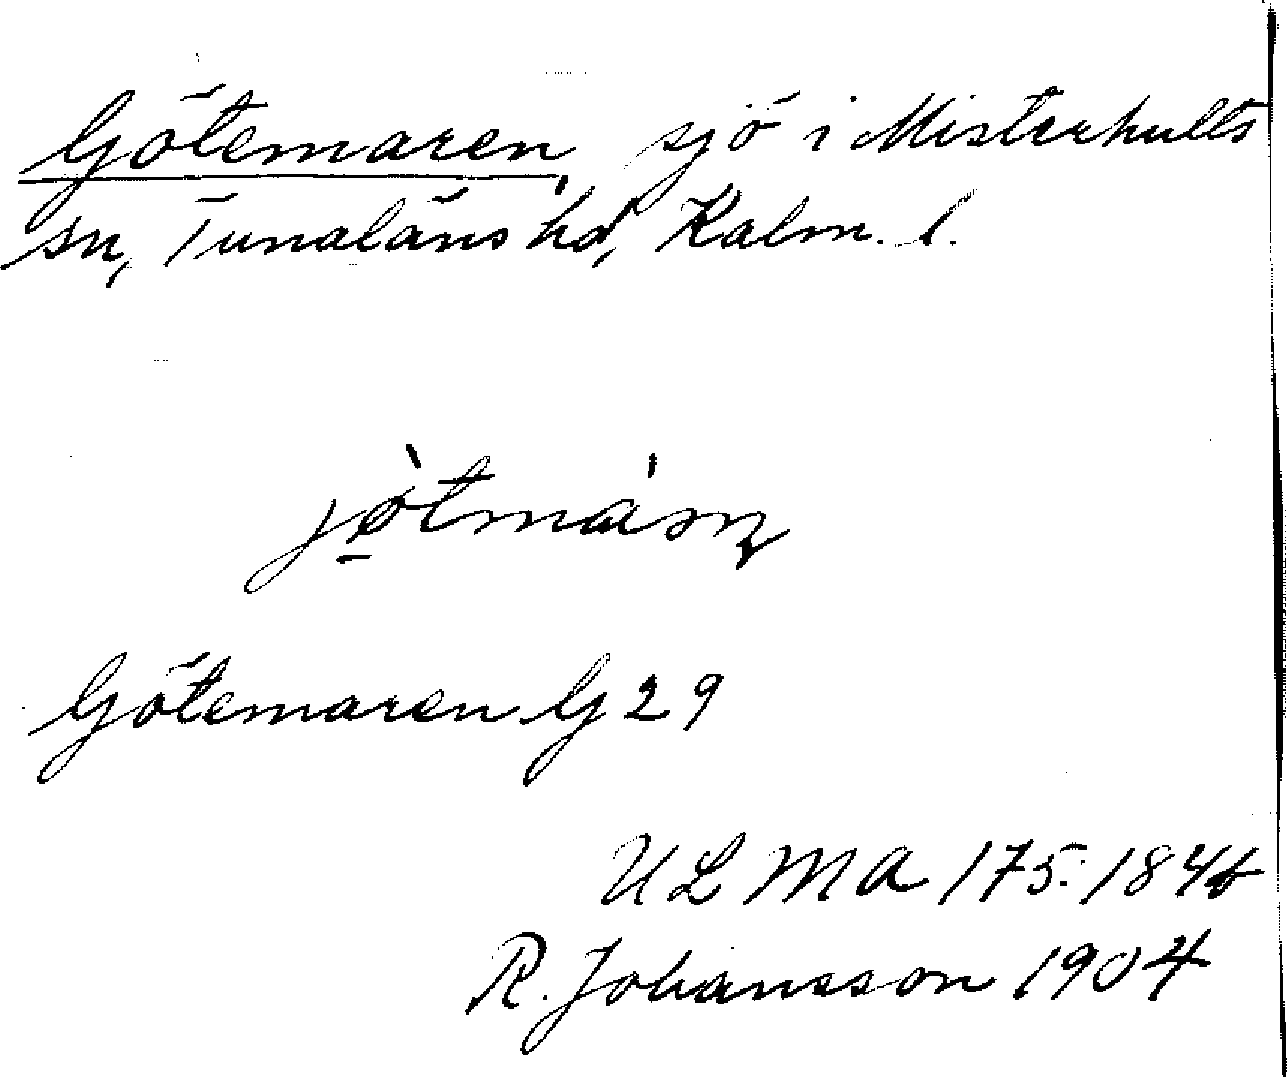 Götemaren, sjö i Misterhults
sn, Tunaläns hd, Kalm. l.
Götemaren G 29
ULMA 175:184b
R. Johansson 1904